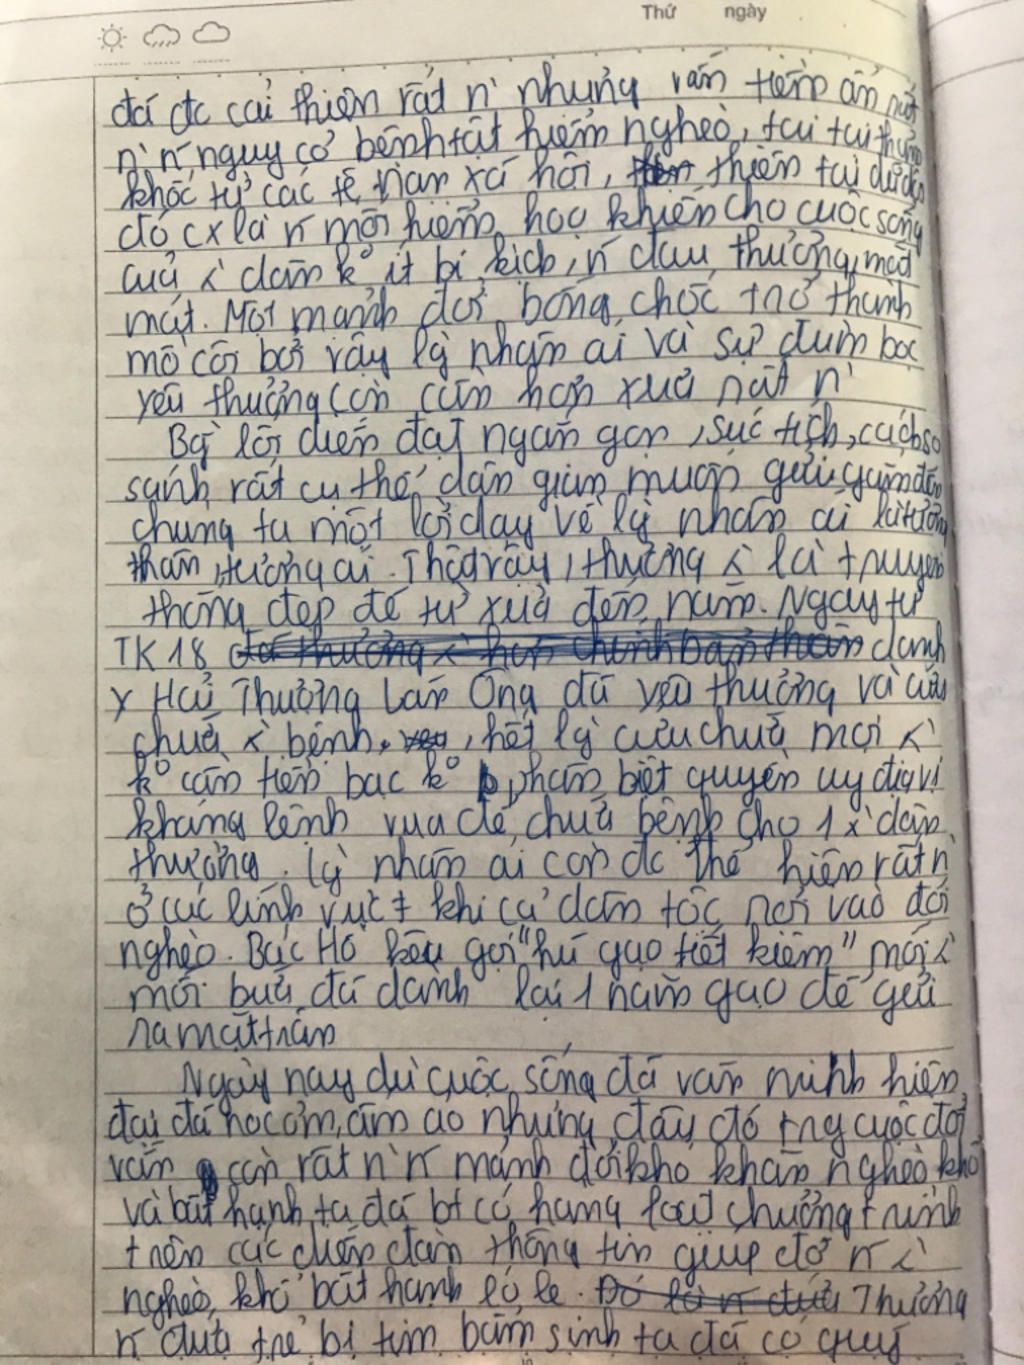 Thứ ngày
đã đc cải thiện rất n` nhưng vẫn tiềm ẩn
n` ~ nguy cơ bệnh tật hiểm nghèo, tai
khốc từ các tệ nạn xã hội, thiên tai
đó cx là ~ mối hiểm hoạ khiến cho cuộc sống
của dân k° ít bi kịch, ~ đau thương, mất
mát. Một mảnh đời bỗng chốc trở thành
mồ côi bởi vậy lý nhân ái và sự đùm bọc
yêu thương còn cần hơn xưa rất n`
Bg` lời diễn đạt ngắn gọn, súc tích, cách so
sánh rất cụ thể dân gian muốn gửi gắm đến
chúng ta một lời dạy về lý nhân ái là tương
thân, tương ái. Thật vậy, thương là truyền
thống đẹp đẽ từ xưa đến nam. Ngay từ
TK 18 danh
y Hải Thượng Lãn Ông đã yêu thương và cứu
chữa bệnh, hết lý cứu chữa mọi
k° cần tiền bạc k° phân biệt quyền uy địa vị
kháng lệnh vua để chữa bệnh cho 1 dân
thường. Lý nhân ái còn đc thể hiện rất n`
ở các lĩnh vực ≠ khi cả dân tộc rơi vào đói
nghèo. Bác Hồ kêu gọi "hũ gạo tiết kiệm" mỗi
mỗi bữa đã dành lại 1 nắm gạo để gửi
ra mặt trận
Ngày nay dù cuộc sống đã văn minh hiện
đại đã no cơm, ấm áo nhưng đâu đó trg cuộc đời
vẫn còn rất n` ~ mảnh đời khó khăn nghèo khổ
và bất hạnh ta đã bt có hàng loạt chương trình
trên các diễn đàn thông tin giúp đỡ ~
nghèo, khổ bất hạnh lẻ loi. Thương
~ đứa trẻ bị tim bẩm sinh ta đã có quỹ